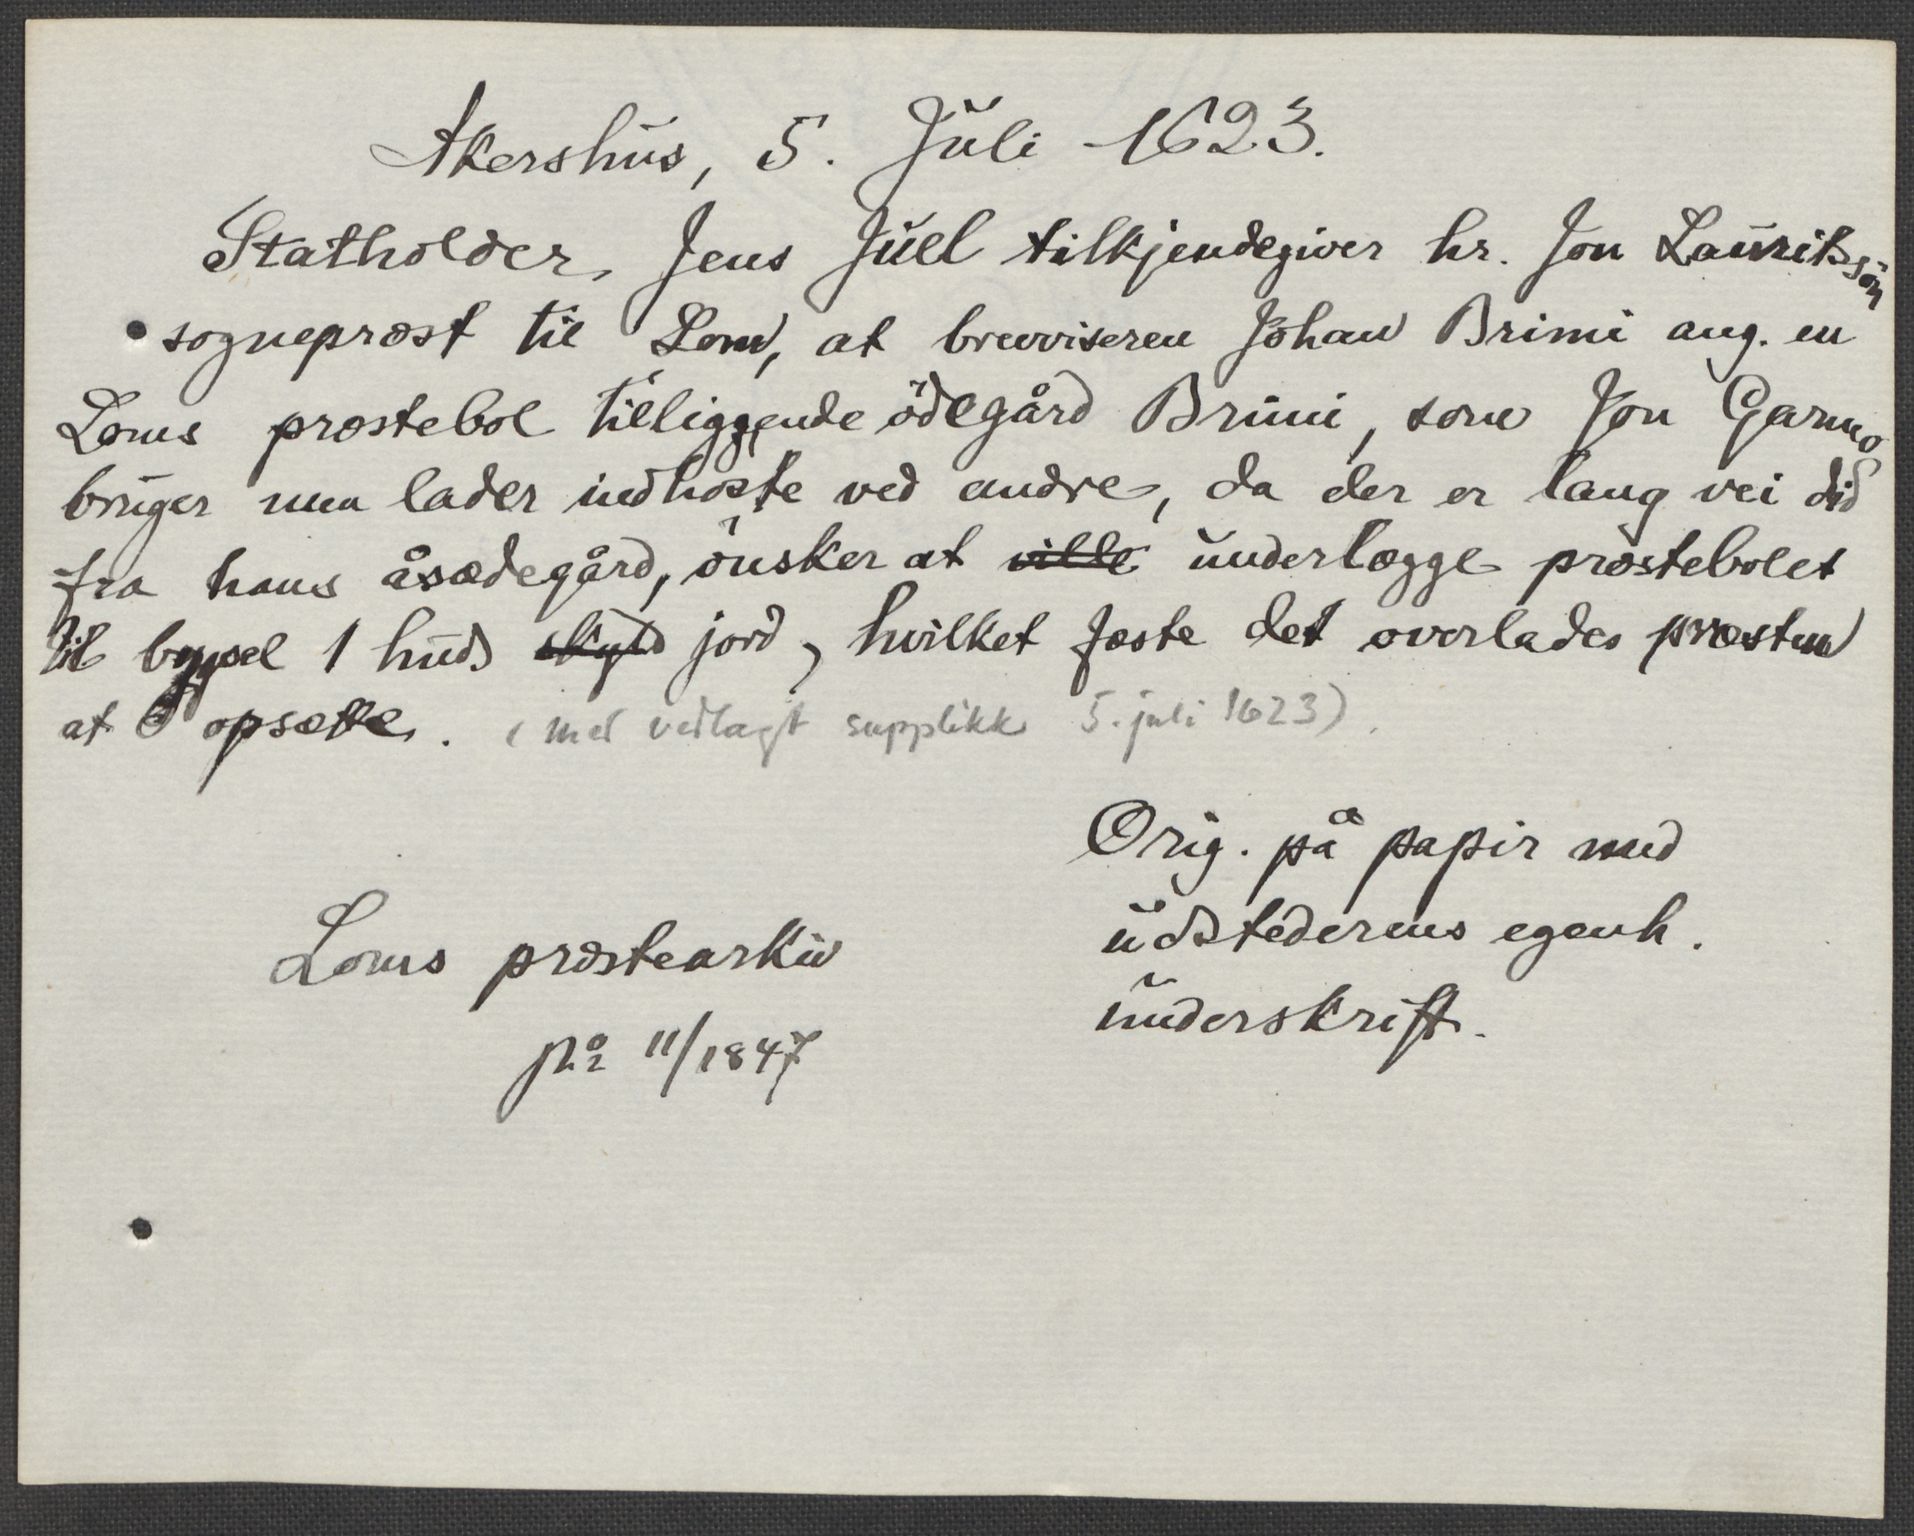 Akershus, 5. Juli 1623.
Statholder Jens Juel tilkjendegiver hr. Jon Lauritssön
sognepræst til Lom, at brevviseren Johan Brimi ang. en
Loms præstebol tilliggende ödegård Brimi, som Jon Garmo
bruger men lader indhöste ved andre, da der er lang vei did
fra hans åsædegård, önsker at ville underlægge præstebolet
til bygsel 1 huds skyld jord, hvilket fæste det overlades præsten
at opsætte. (med vedlagt supplikk 5. juli 1623).
Orig. på papir med
udstederens egenh.
underskrift.
Loms præstearkiv
på 11/1847